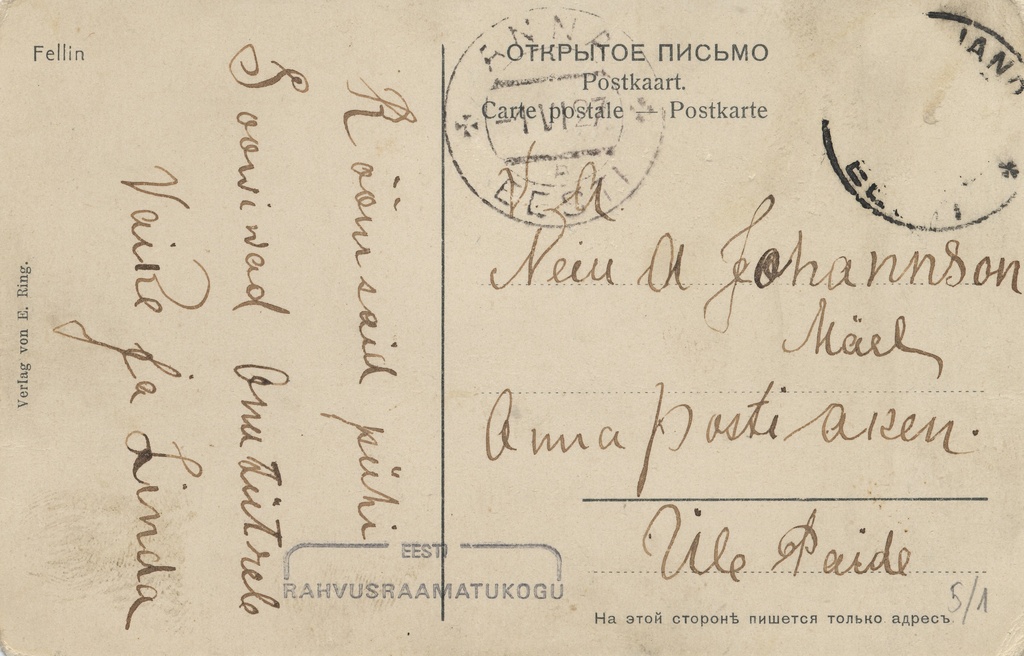 Fellin
ОТКРЫТОЕ ПИСЬМО
Postkaart.
Carte postale — Postkarte
ANNA
-1 VI 27
EESTI
Rõõmsaid pühi
Soowiwad Onutütrele
Vaike ja Linda
N. A
Neiu A Johannson
Mäel
Anna posti aken.
Üle Paide
EESTI
RAHVUSRAAMATUKOGU
На этой сторонѣ пишется только адресъ.
5/1
Verlag von E. Ring.